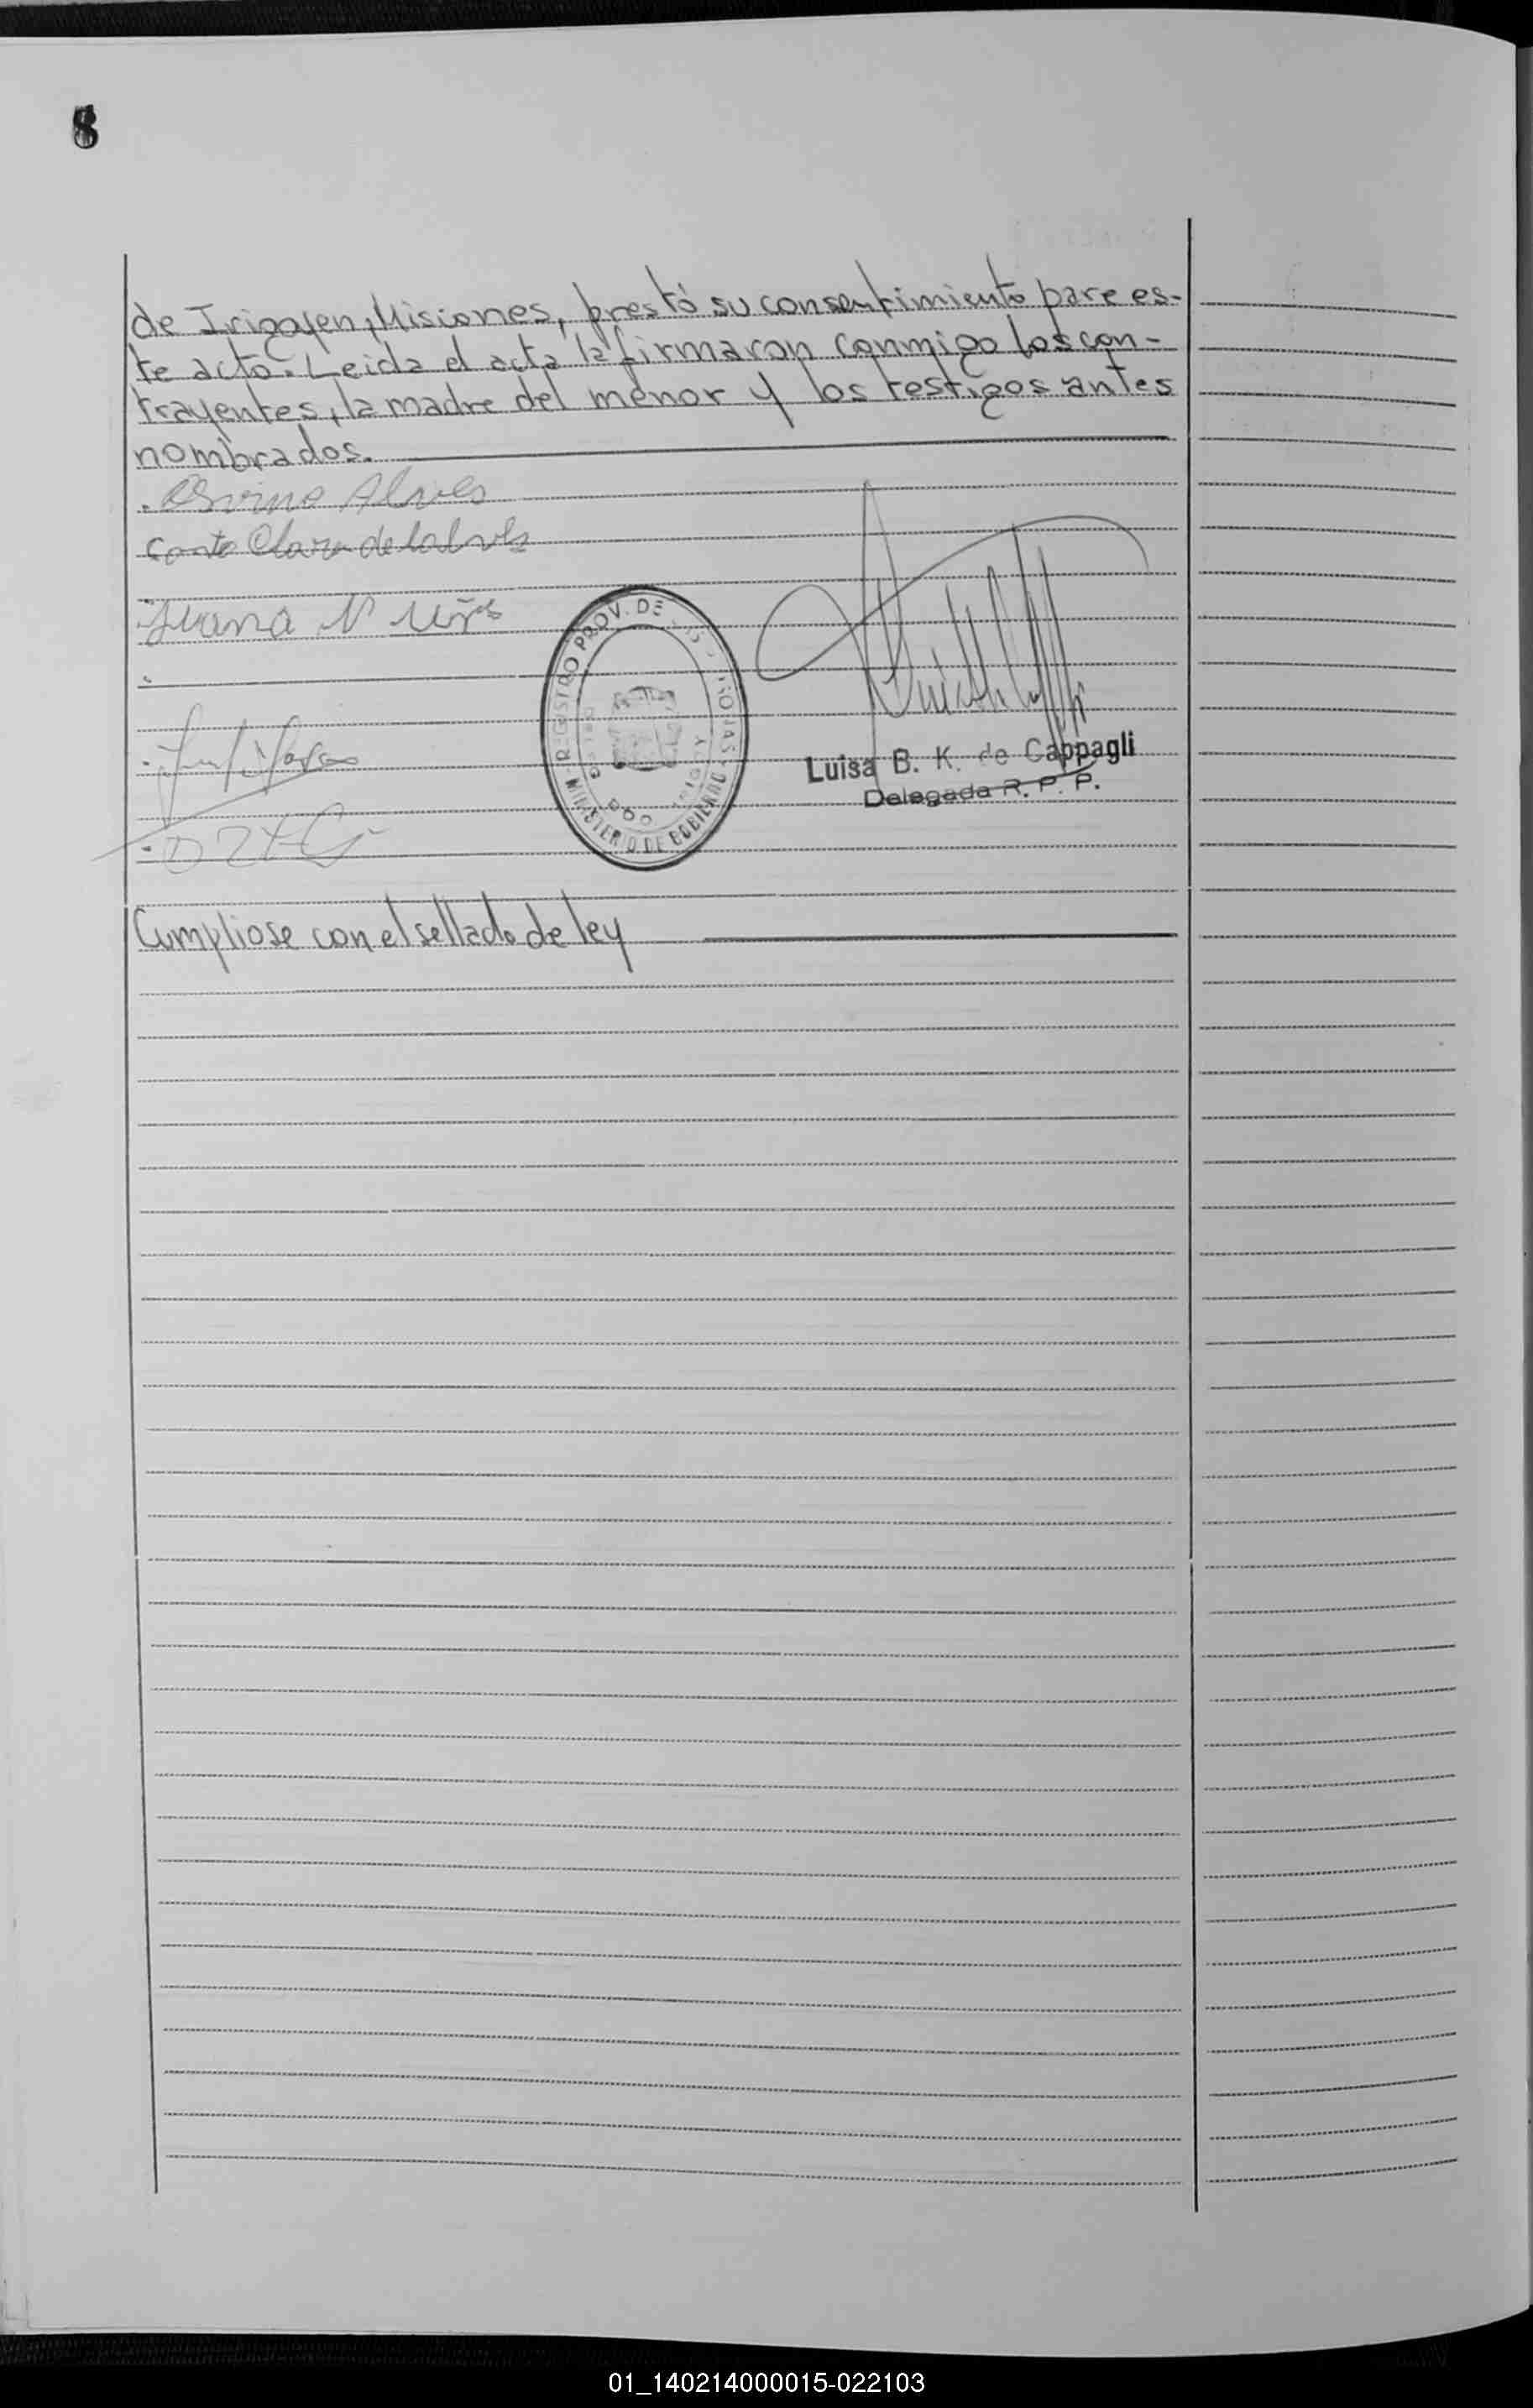 8
de Irigoyen, Misiones, prestó su consentimiento para es-
te acto. Leida el acta la firmaron conmigo los con-
trayentes, la madre del menor y los testigos antes
nombrados.
Alves
Clara de
Juana N
REGISTRO PROV. DE LAS PERSONAS
MINISTERIO DE GOBIERNO
Luisa B. K. de Cappagli
Delegada R. P. P.
Cumpliose con el sellado de ley
01_140214000015-022103